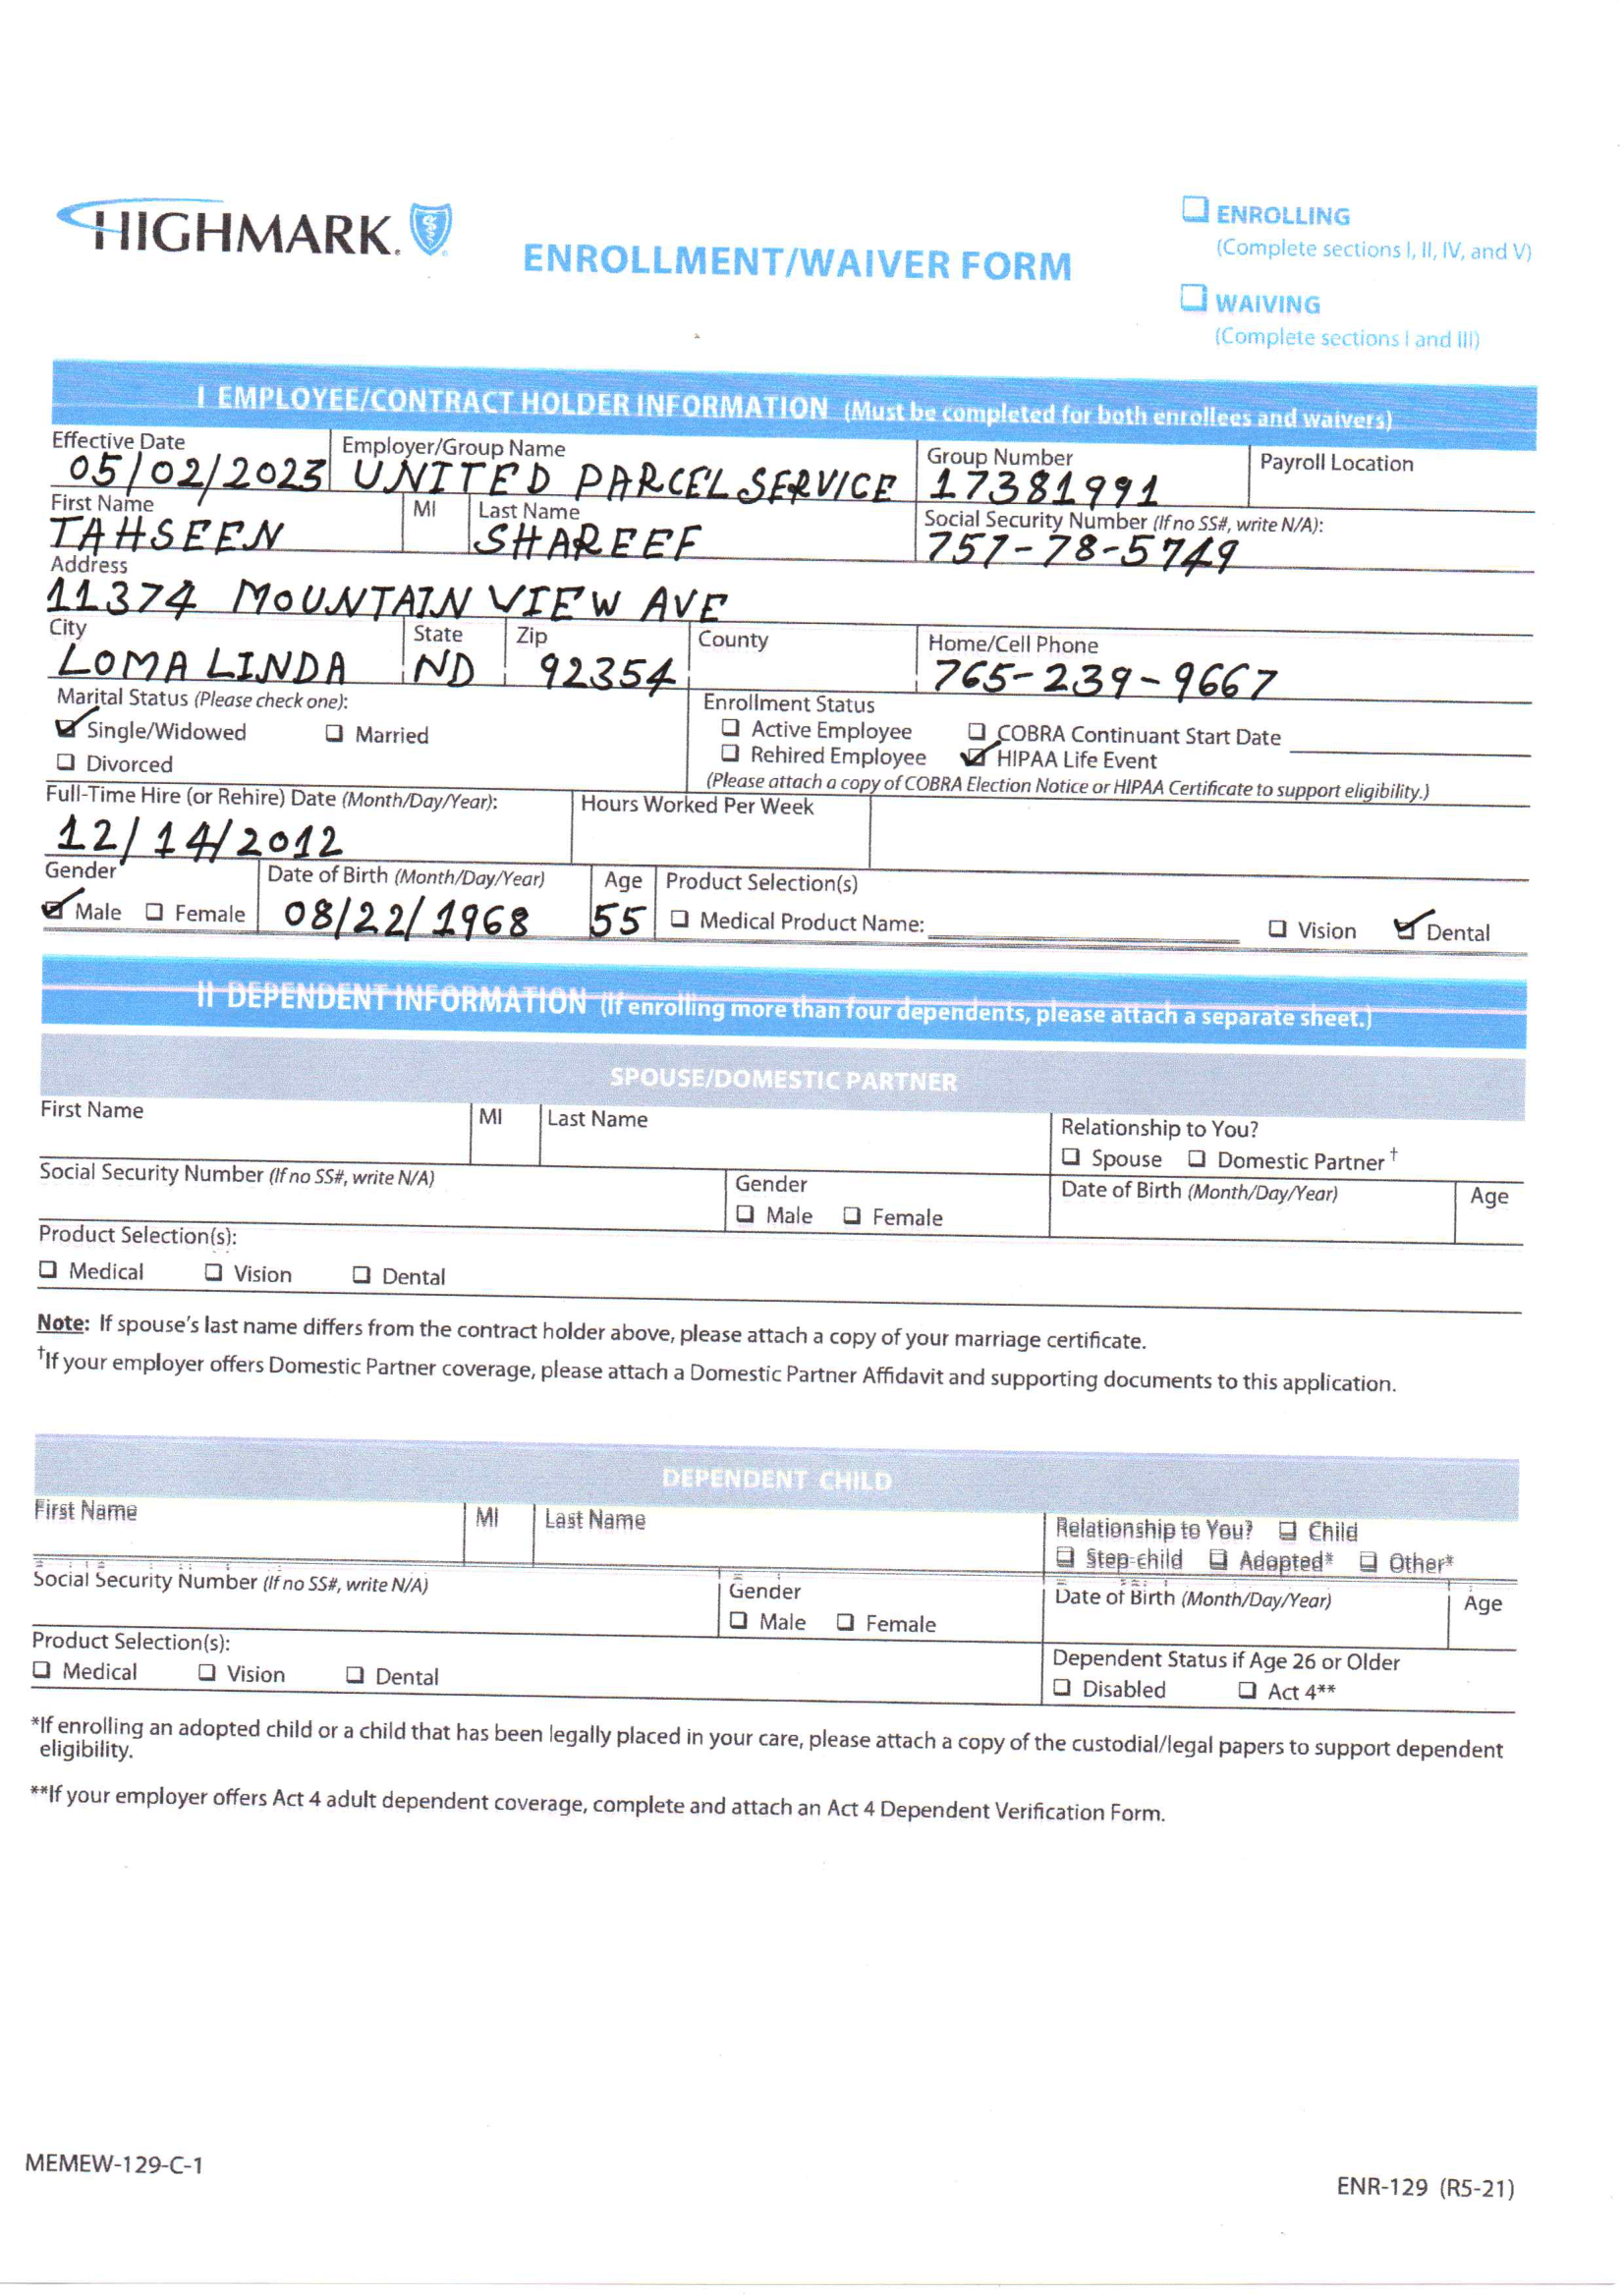 HIGHMARK.
ENROLLMENT/WAIVER FORM
❏ ENROLLING
(Complete sections I, II, IV, and V)
❏ WAIVING
(Complete sections I and III)
I EMPLOYEE/CONTRACT HOLDER INFORMATION (Must be completed for both enrollees and waivers)
Effective Date Employer/Group Name Group Number Payroll Location
05/02/2023 UNITED PARCEL SERVICE 17381991
First Name MI Last Name Social Security Number (If no SS#, write N/A):
TAHSEEN SHAREEF 757-78-5749
Address
11374 MOUNTAIN VIEW AVE
City State Zip County Home/Cell Phone
LOMA LINDA ND 92354 765-239-9667
Marital Status (Please check one): Enrollment Status
☑ Single/Widowed ❏ Married ❏ Active Employee ❏ COBRA Continuant Start Date
❏ Divorced ❏ Rehired Employee ☑ HIPAA Life Event
(Please attach a copy of COBRA Election Notice or HIPAA Certificate to support eligibility.)
Full-Time Hire (or Rehire) Date (Month/Day/Year): Hours Worked Per Week
12/14/2012
Gender Date of Birth (Month/Day/Year) Age Product Selection(s)
☑ Male ❏ Female 08/22/1968 55 ❏ Medical Product Name: ❏ Vision ☑ Dental
II DEPENDENT INFORMATION (If enrolling more than four dependents, please attach a separate sheet.)
SPOUSE/DOMESTIC PARTNER
First Name MI Last Name Relationship to You?
❏ Spouse ❏ Domestic Partner†
Social Security Number (If no SS#, write N/A) Gender Date of Birth (Month/Day/Year) Age
❏ Male ❏ Female
Product Selection(s):
❏ Medical ❏ Vision ❏ Dental
Note: If spouse's last name differs from the contract holder above, please attach a copy of your marriage certificate.
†If your employer offers Domestic Partner coverage, please attach a Domestic Partner Affidavit and supporting documents to this application.
DEPENDENT CHILD
First Name MI Last Name Relationship to You? ❏ Child
❏ Step-child ❏ Adopted* ❏ Other*
Social Security Number (If no SS#, write N/A) Gender Date of Birth (Month/Day/Year) Age
❏ Male ❏ Female
Product Selection(s): Dependent Status if Age 26 or Older
❏ Medical ❏ Vision ❏ Dental ❏ Disabled ❏ Act 4**
*If enrolling an adopted child or a child that has been legally placed in your care, please attach a copy of the custodial/legal papers to support dependent
eligibility.
**If your employer offers Act 4 adult dependent coverage, complete and attach an Act 4 Dependent Verification Form.
MEMEW-129-C-1
ENR-129 (R5-21)